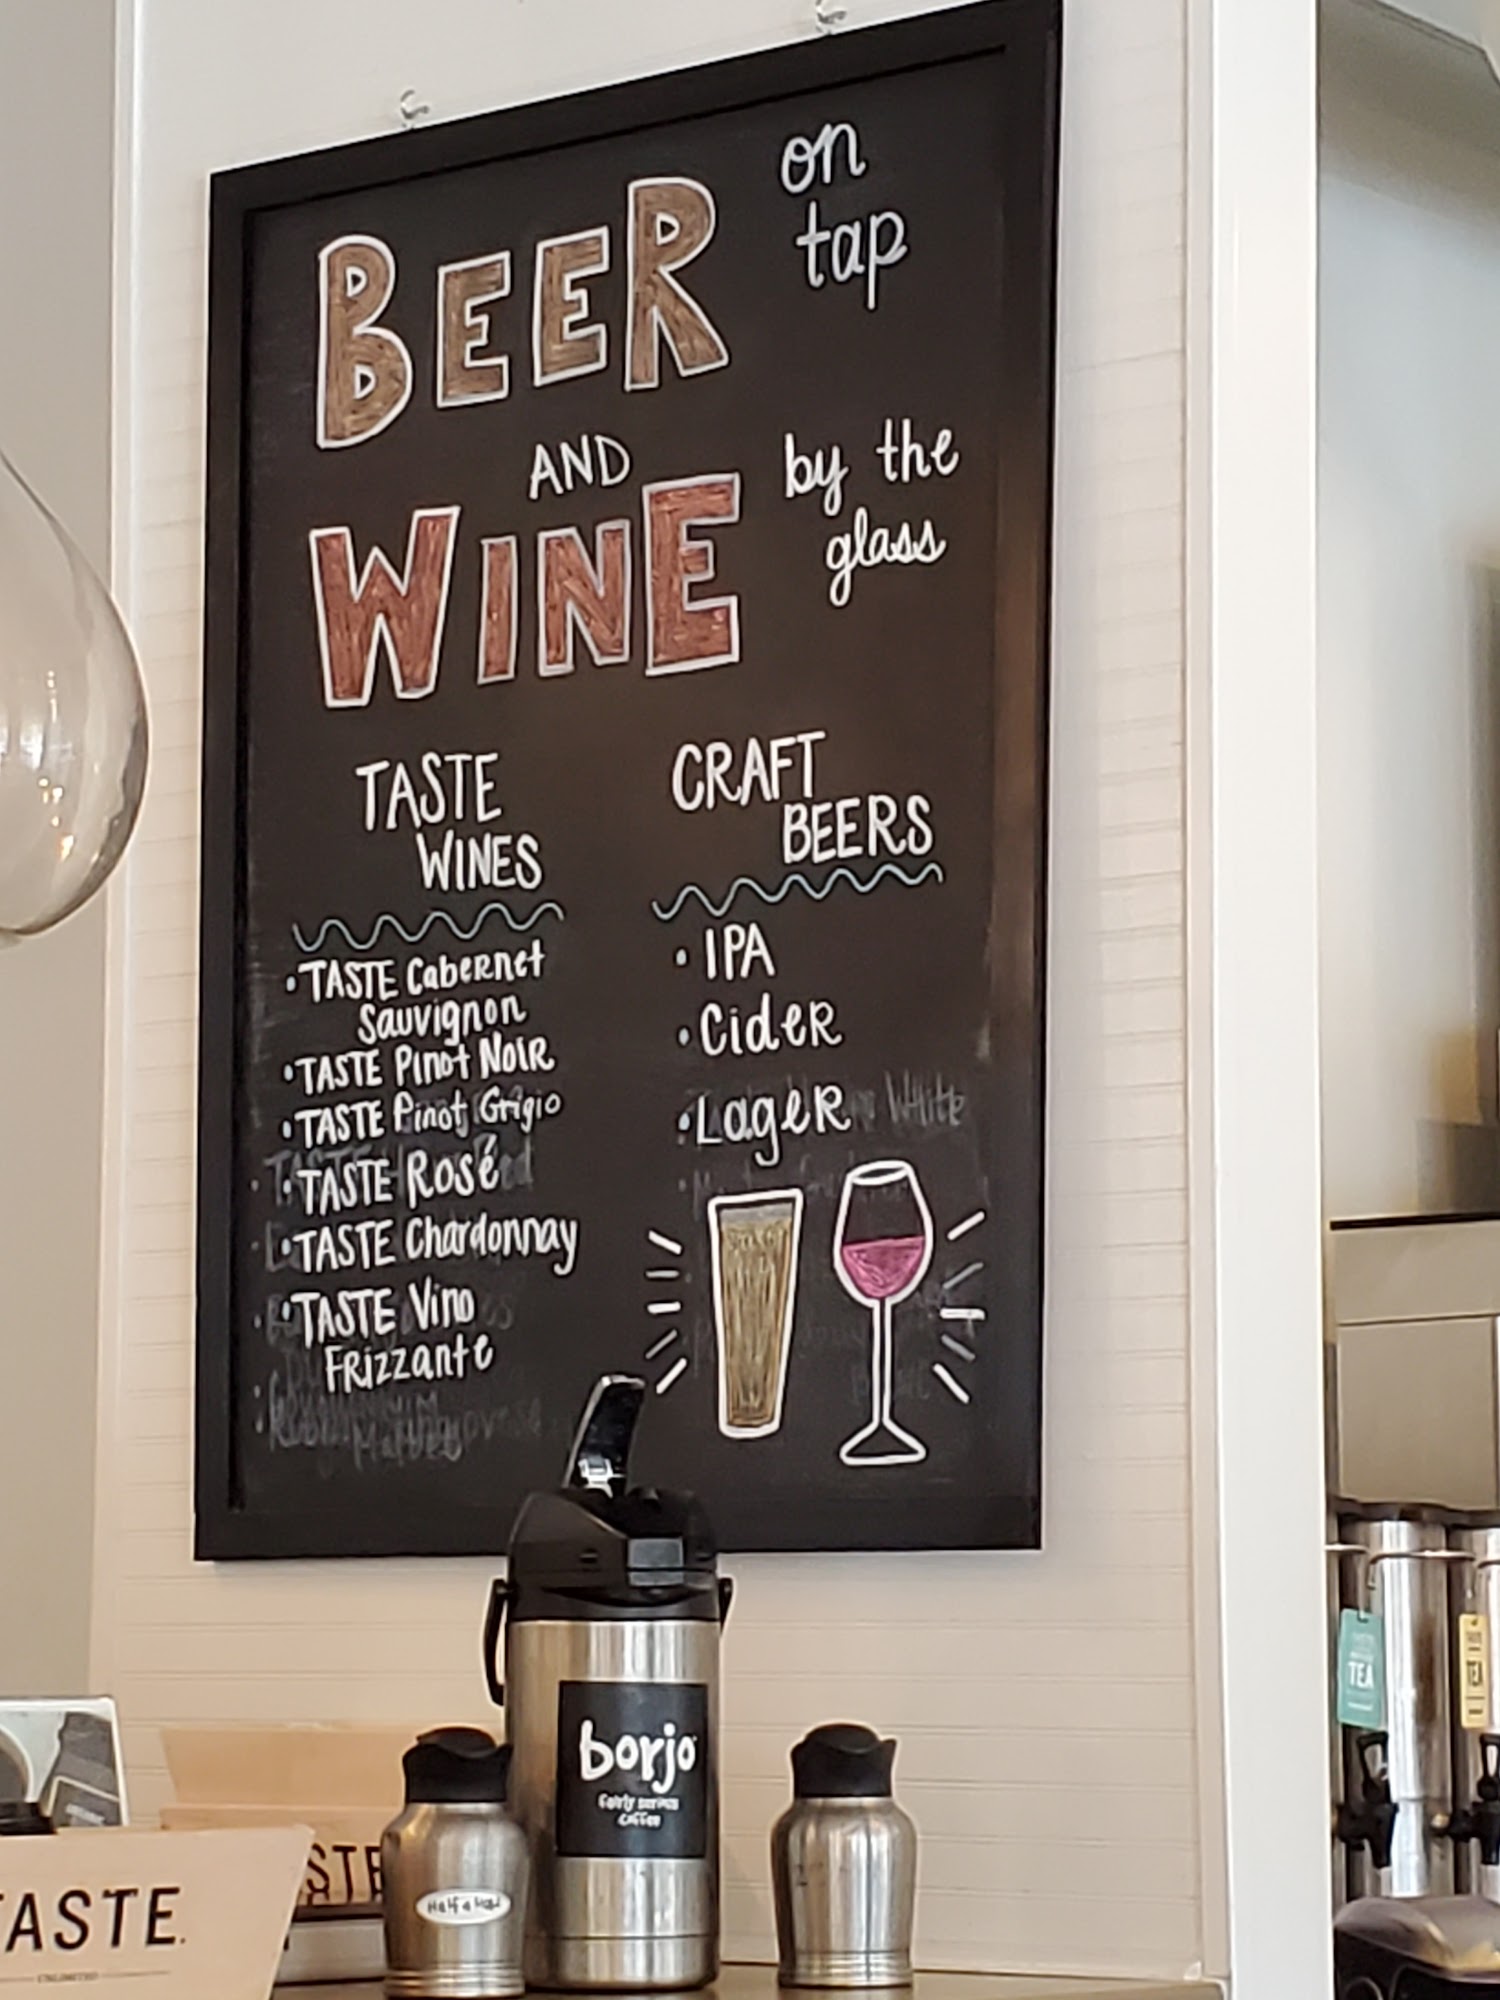 BEER on tap
AND
WINE by the glass
TASTE
WINES
CRAFT
BEERS
• TASTE Cabernet
Sauvignon
• TASTE Pinot Noir
• TASTE Pinot Grigio
• TASTE Rosé
• TASTE Chardonnay
• TASTE Vino
Frizzante
• IPA
• Cider
• Lager
White
borjo
fairly serious
coffee
Half & Half
TASTE.
TEA
TEA